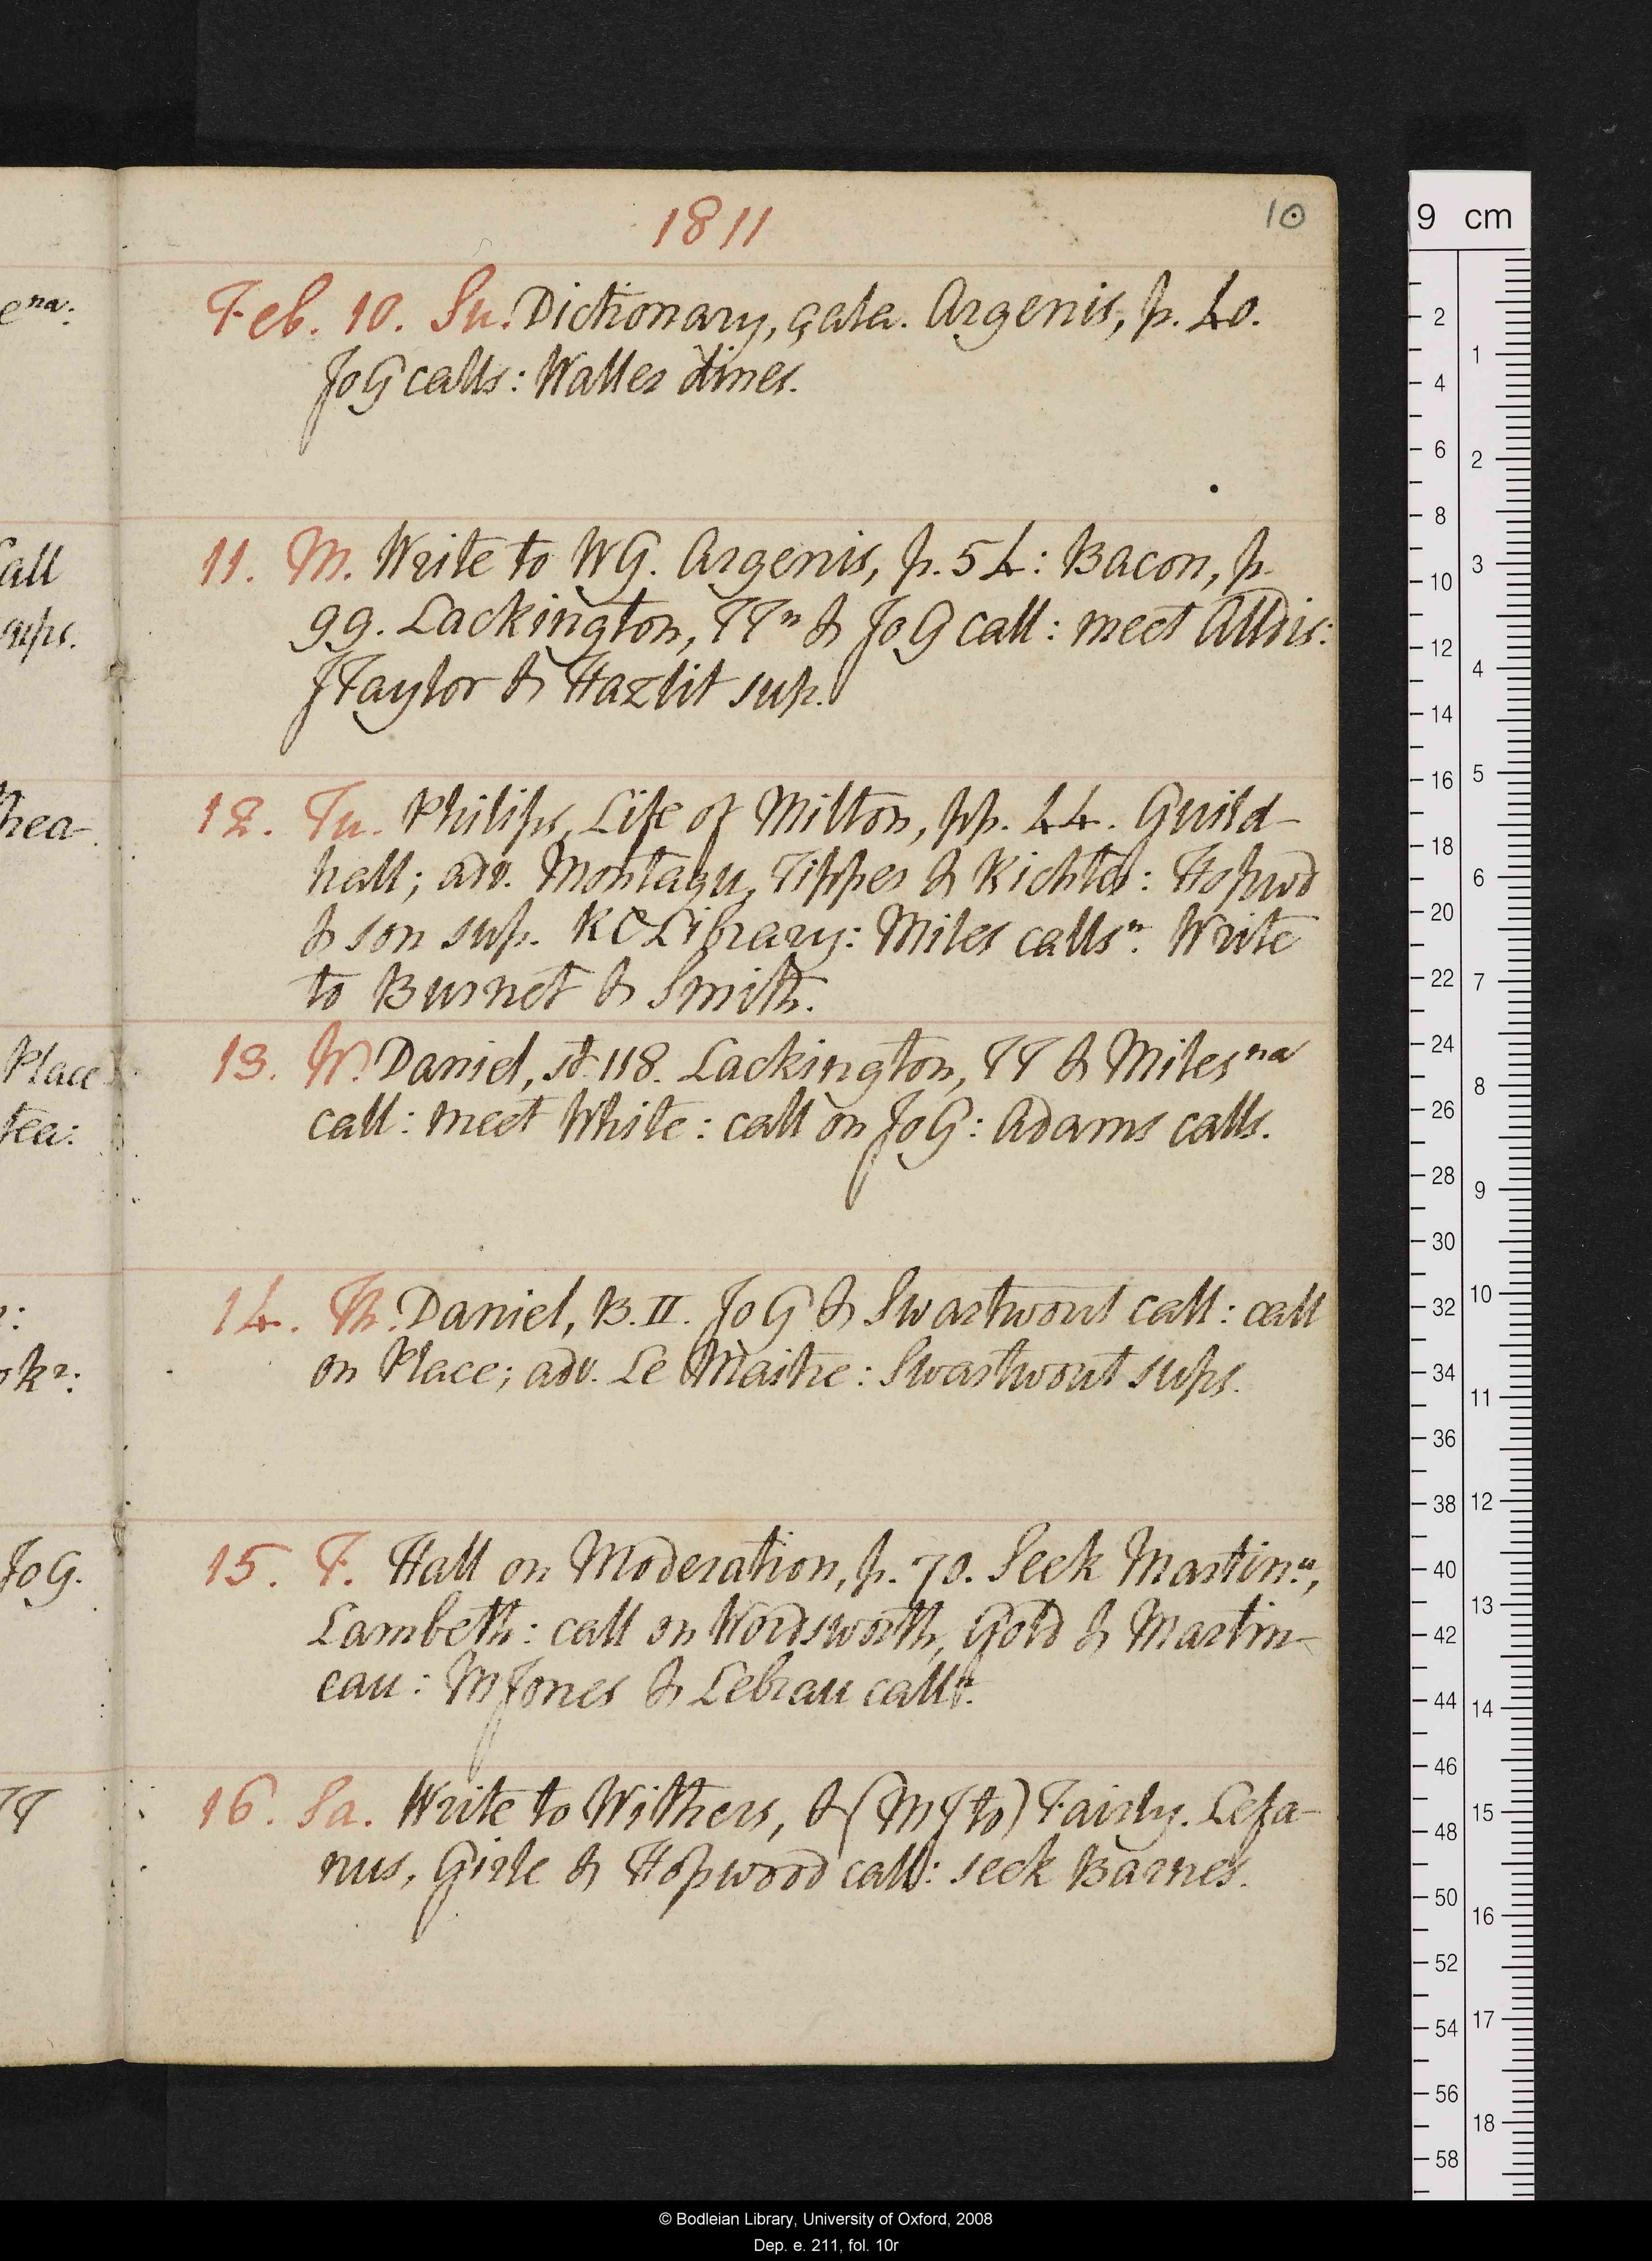 1811
10
Feb. 10. Su. Dictionary, gala. Argenis, p. 40.
JoG calls: Waller dines.
11. M. Write to WG. Argenis, p. 54: Bacon, p.
99. Lackington, TTn & JoG call: meet Alldis:
JTaylor & Hazlit sup.
12. Tu. Philips, Life of Milton, pp. 44. Guild-
hall; adv. Montagu, Tipper & Richter: Hopwd
& son sup. RC Library: Miles callsn. Write
to Burnet & Smith.
13. W. Daniel, st. 118. Lackington, TT & Miles na
call: meet White: call on JoG: Adams calls.
14. Th. Daniel, B. II. JoG & Swartwout call: call
on Place; adv. Le Maitre: Swartwout sups.
15. F. Hall on Moderation, p. 70. Seek Martin.n,
Lambeth: call on Wordsworth, Gold & Martin-
eau: MJones & Lebrau calln.
16. Sa. Write to Withers, & (MJ to) Fairly. Lefa-
nus, Girle & Hopwood call: seek Barnes.
ena:
Call
sups.
hea-
Place
tea:
JoG.
TT
9 cm
2
4
6
8
10
12
14
16
18
20
22
24
26
28
30
32
34
36
38
40
42
44
46
48
50
52
54
56
58
1
2
3
4
5
6
7
8
9
10
11
12
13
14
15
16
17
18
© Bodleian Library, University of Oxford, 2008
Dep. e. 211, fol. 10r